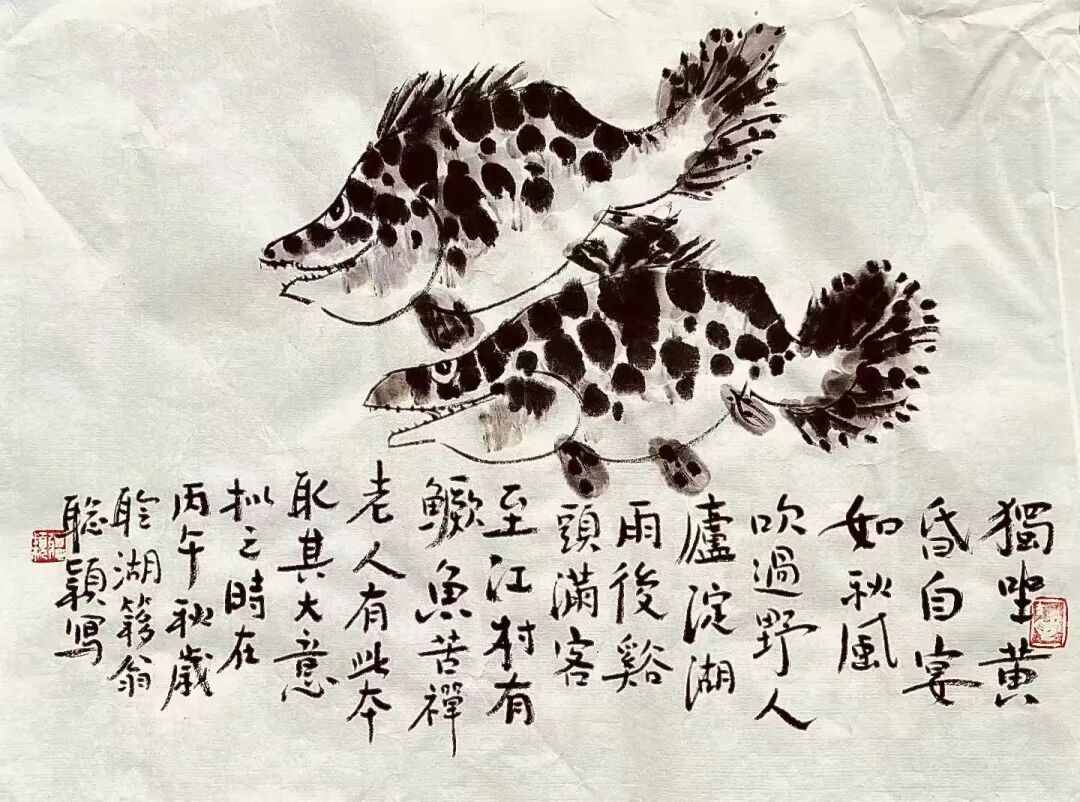 獨坐黄
昏自宴
如秋風
吹過野人
廬淀湖
雨後谿
頭滿客
至江村有
鱖魚苦禪
老人有此本
取其大意
拟之時在
丙午秋歲
聆湖簃翁
聡穎寫